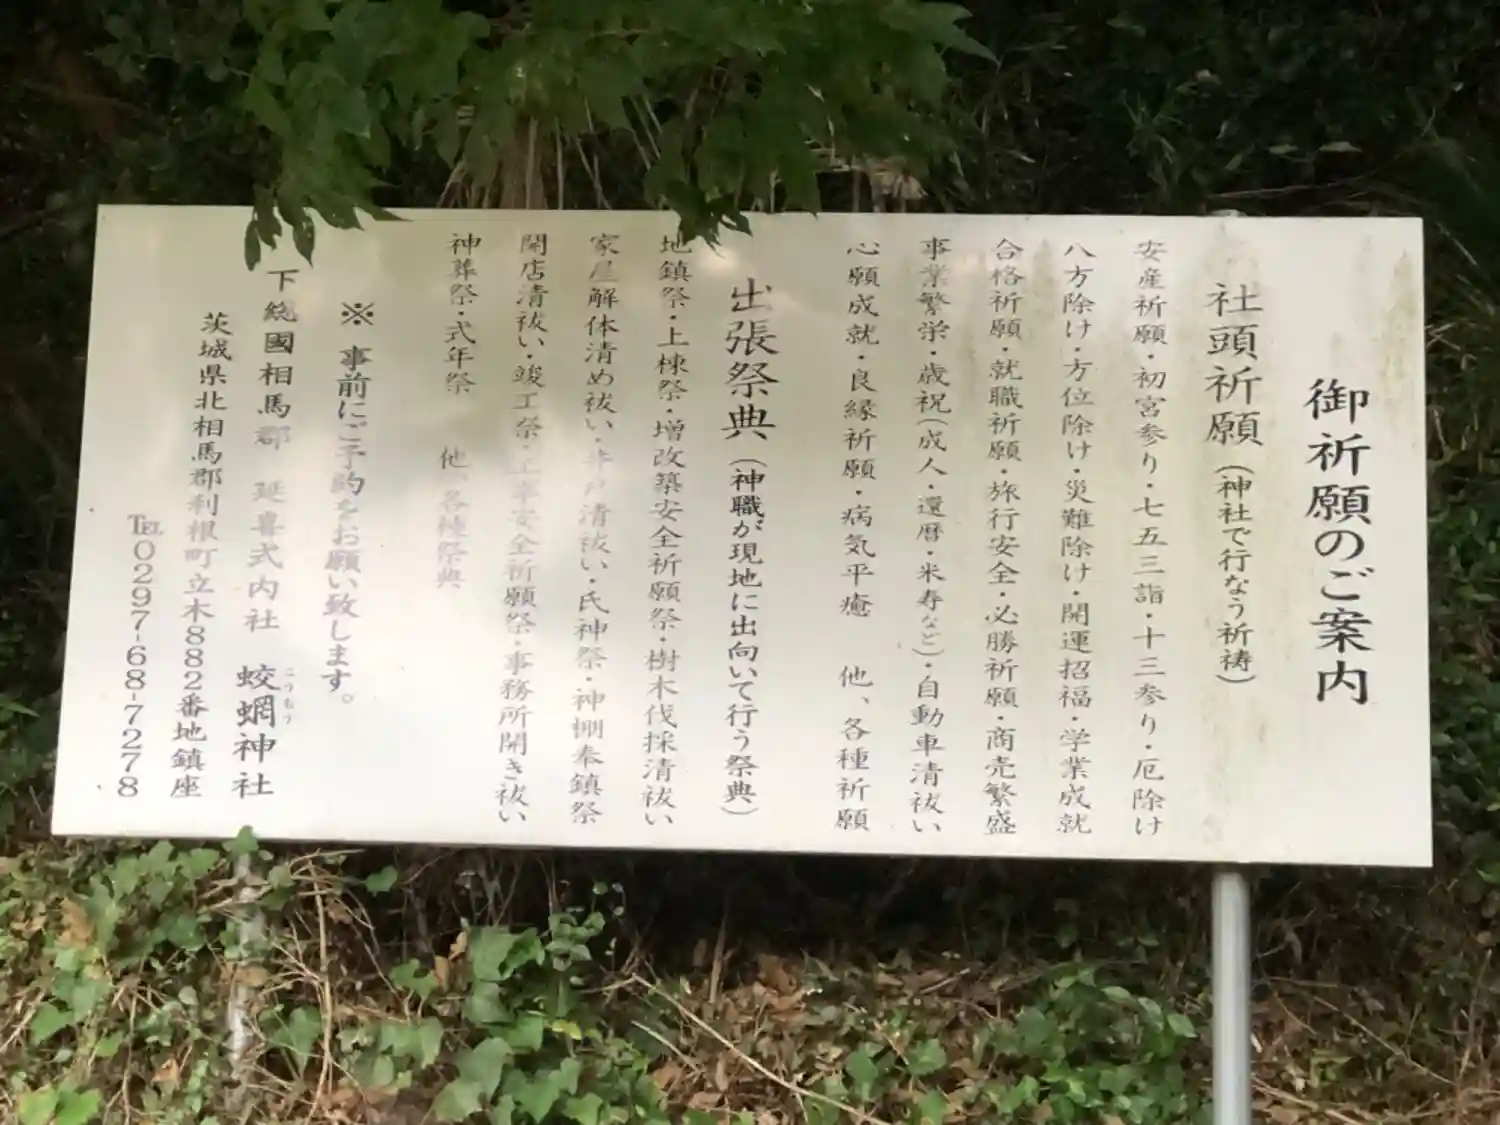 御祈願のご案内
社頭祈願(神社で行なう祈祷)
安産祈願・初宮参り・七五三詣・十三参り・厄除け
八方除け・方位除け・災難除け・開運招福・学業成就
合格祈願・就職祈願・旅行安全・必勝祈願・商売繁盛
事業繁栄・歳祝(成人・還暦・米寿など)・自動車清祓い
心願成就・良縁祈願・病気平癒 他、各種祈願
出張祭典(神職が現地に出向いて行う祭典)
地鎮祭・上棟祭・増改築安全祈願祭・樹木伐採清祓い
家屋解体清め祓い・井戸清祓い・氏神祭・神棚奉鎮祭
開店清祓い・竣工祭・工事安全祈願祭・事務所開き祓い
神葬祭・式年祭 他、各種祭典
※ 事前にご予約をお願い致します。
下総國相馬郡 延喜式内社 蛟蝄神社
こうもう
茨城県北相馬郡利根町立木882番地鎮座
℡0297-68-7278